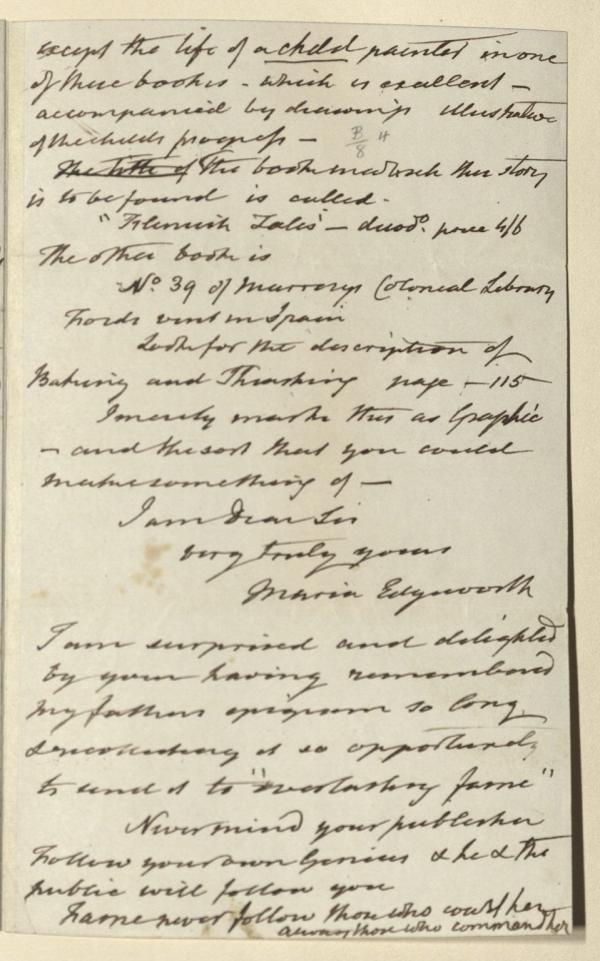 except the life of a child painted in one
of these books - which is excellent -
accompanied by drawings illustrative
of the childs progress -
B/8 4
The title of the book in which this story
is to be found is called -
"Flemish Tales" - duodo. price 4/6
The other book is
No. 39 of Murrays Colonial Library
Fords in Spain
Look for the description of
Baking and Thrashing page - 115
I merely mark this as Graphic
- and the sort that you could
make something of -
I am Dear Sir
very truly yours
Maria Edgeworth
I am surprised and delighted
by your having remembered
my fathers epigram so long
& recollecting it so opportunely
to send it to "everlasting fame"
Never mind your publisher
Follow your own Genius & he & the
public will follow you
Fame never follow those who court her
always those who command her